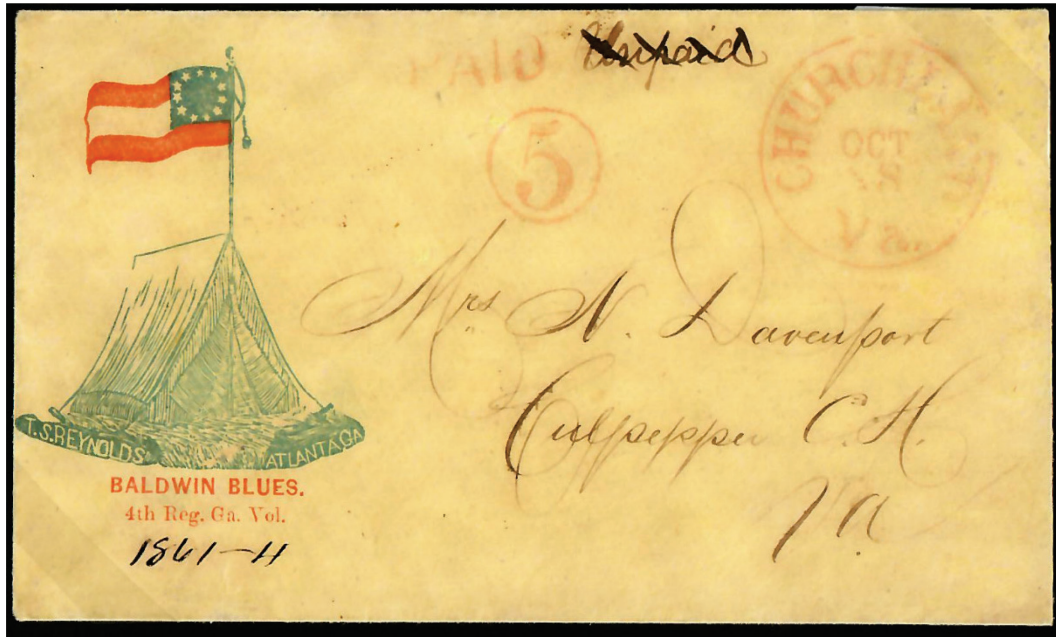 PAID Unpaid
5
CHURCH
OCT
Va.
Mrs N. Davenport
Culpepper C. H.
Va
T.S.REYNOLDS ATLANTA GA
BALDWIN BLUES.
4th Reg. Ga. Vol.
1861-4